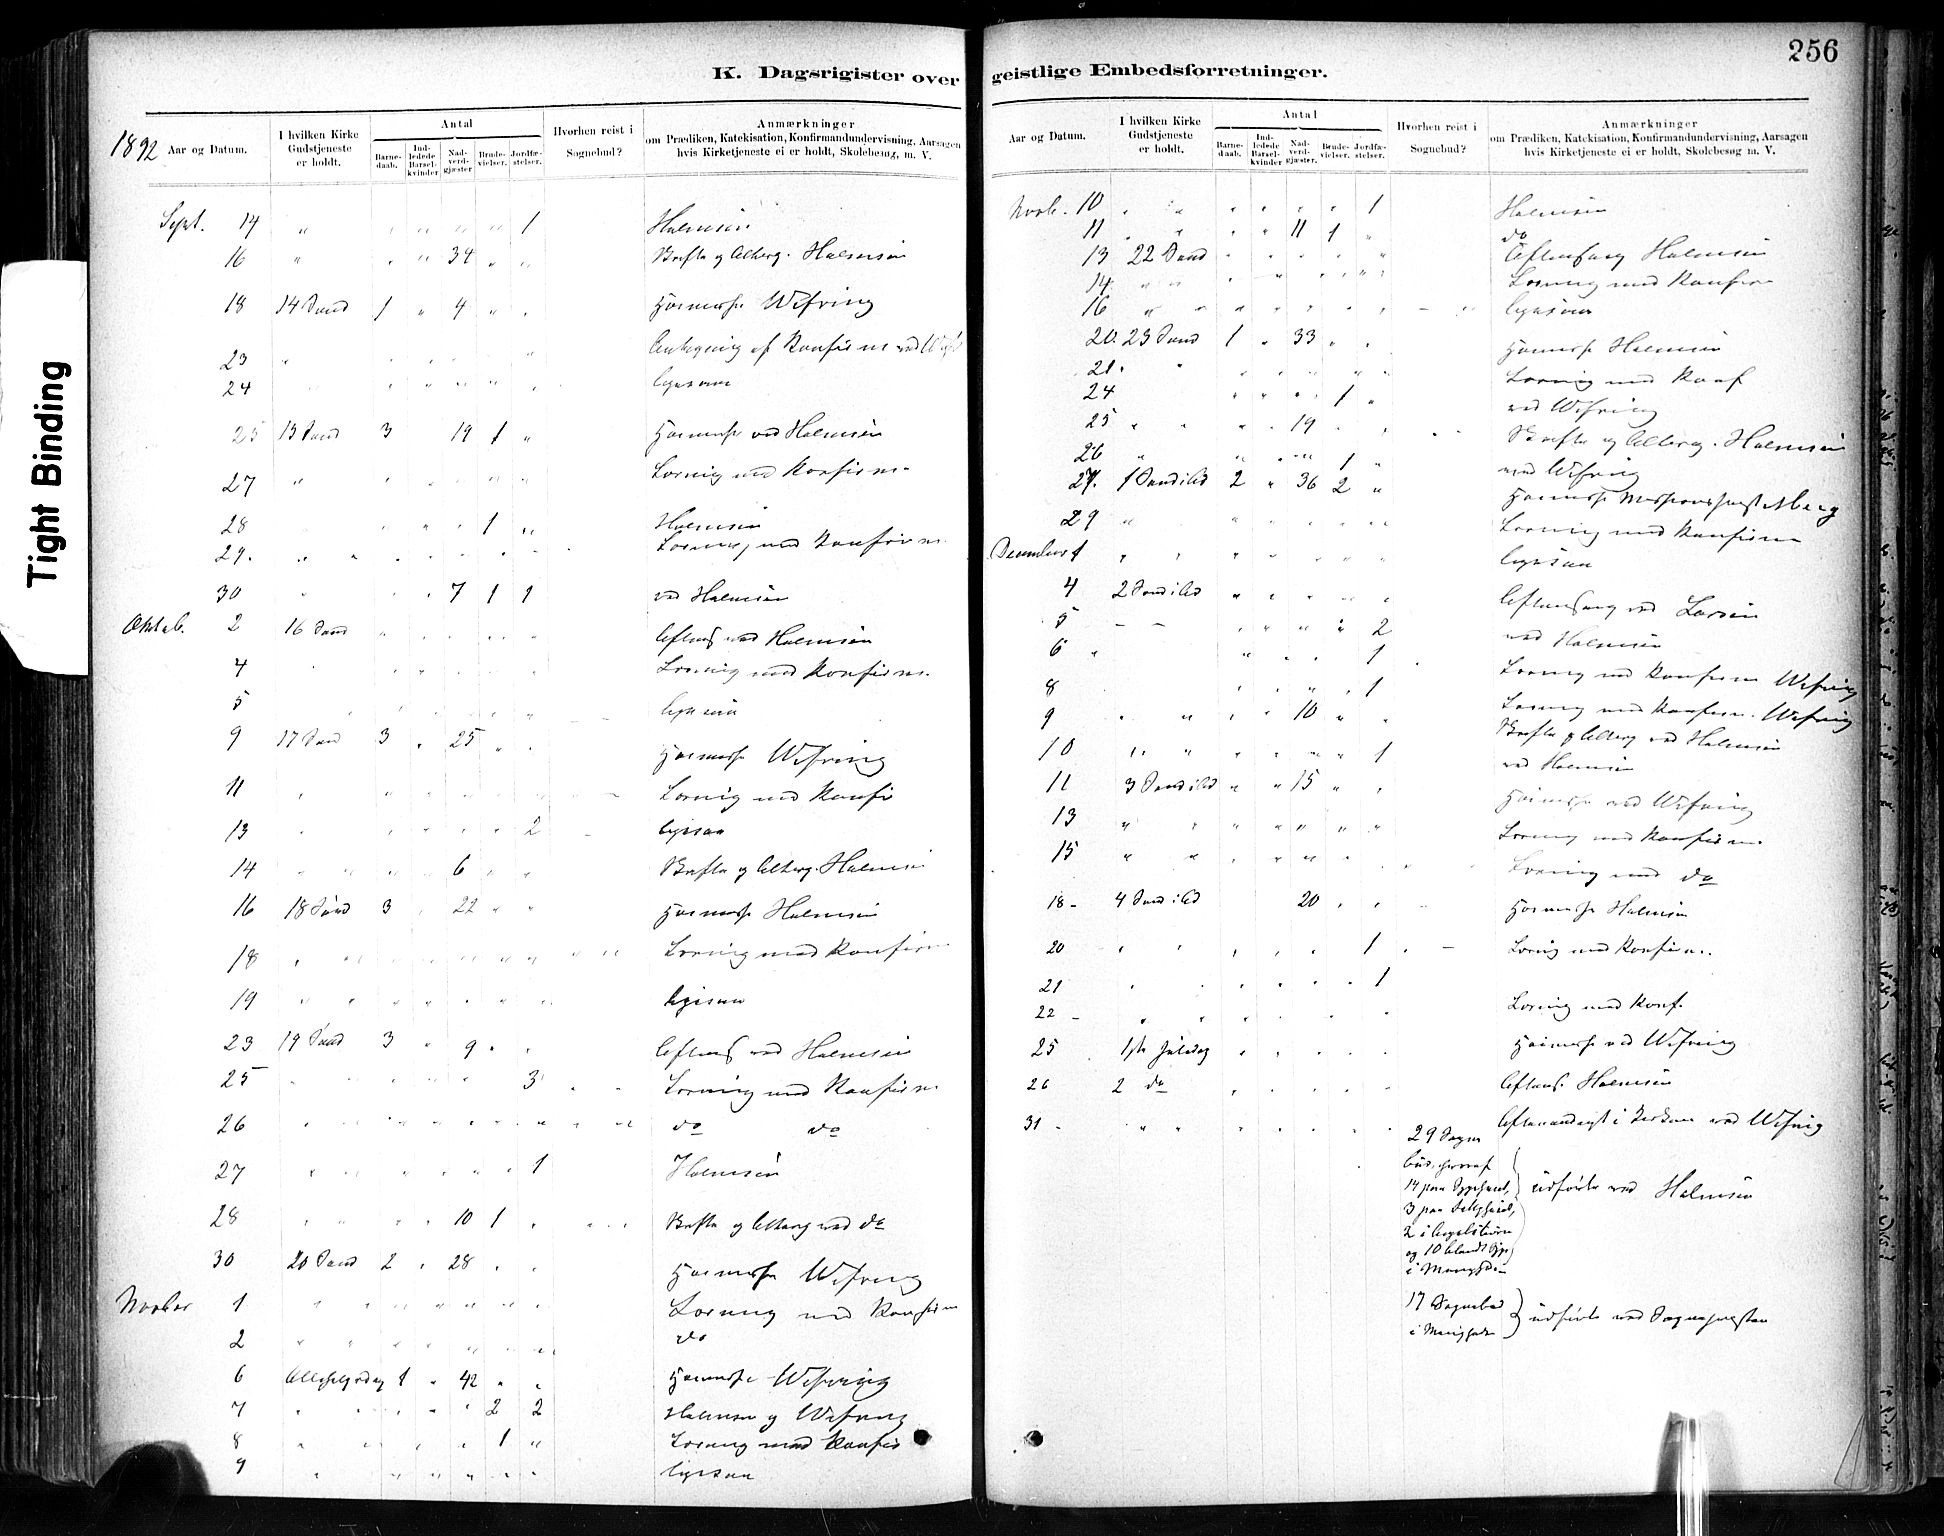 256
K. Dagsrigister over geistlige Embedsforretninger.
Tight Binding
1892
Aar og Datum.
I hvilken Kirke Gudstjeneste er holdt.
Antal
Barnedaab.
Indledede Barselkvinder
Nadverdgjæster
Brudevielser.
Jordfæstelser.
Hvorhen reist i Sognebud?
Anmærkninger
om Prædiken, Katekisation, Konfirmandundervisning, Aarsagen
hvis Kirketjeneste ei er holdt, Skolebesøg, m. V.
Sept. 14 " " " " " 1 Halmsen
16 " " " 34 " " Skrifte og Altberg. Halmsen
18 14 Sønd 1 " 4 " " Høimesse Wefring
23 Antegning af Konfirm ved
24 ligesaa
25 15 Sønd 3 19 1 " Høimesse ved Halmsen
27 " Læsning med Konfirm.
28 1 " Halmsen
29. Læsning med Konfirm
30 7 1 1 ved Halmsen
Oktob. 2 16 Sønd Aftens ved Halmsen
4 Læsning med Konfirm.
5 ligesaa
9 17 Sønd 3 " 25 " " Høimesse Wefring
11 Læsning med Konfir
13 2 ligesaa
14 6 Skrifte og Altberg. Halmsen
16 18 Sønd 3 22 " " Høimesse Halmsen
18 Læsning med Konfirm
19 ligesaa
23 19 Sønd 3 " 9 " " Aftens ved Halmsen
25 3 Læsning med Konfirm
26 do do
27 1 Halmsen
28 10 1 Skrifte og Altberg ved do
30 20 Sønd 2 " 28 " " Høimesse Wefring
Novbr 1 Læsning med Konfirm
2 do
6 Allehelgsdag 1 " 42 " " Høimesse Wefring
7 2 2 Halmsen og Wefring
8 1 " Læsning med Konfir
9 ligesaa
Aar og Datum.
I hvilken Kirke Gudstjeneste er holdt.
Antal
Barnedaab.
Indledede Barselkvinder
Nadverdgjæster
Brudevielser.
Jordfæstelser.
Hvorhen reist i Sognebud?
Anmærkninger
om Prædiken, Katekisation, Konfirmandundervisning, Aarsagen
hvis Kirketjeneste ei er holdt, Skolebesøg m. V.
Novb. 10 1 Halmsen
11 11 1 " do
13 22 Sønd Aftensang Halmsen
14 Læsning med Konfirm
16 ligesaa
20. 23 Sønd 1 " 33 " Høimesse Halmsen
21. Læsning med Konf
24 1 " ved Wefring
25 19 Skrifte og Altberg. Halmsen
26 1 " ved Wefring
27. 1 Sønd i Ad 2 " 36 2 " Høimesse Missionsprest
29 Læsning med Konfirm
December 1 ligesaa
4 2 Sønd i Ad Aftensang ved Larsen
5 2 ved Halmsen
6 1
8 1 Læsning med Konfirm Wefring
9 10 Læsning med Konfirm. Wefring
Skrifte og Altberg ved Halmsen
10 1 ved Halmsen
11 3 Sønd i Ad " " 15 " " Høimesse ved Wefring
13 Læsning med Konfirm.
15 Læsning med do
18 - 4 Sønd i Ad 20 Høimesse Halmsen
20 1 Læsnig med Konfirm.
21 1
22 - Læsning med Konf.
25 1ste Juledag Høimesse ved Wefring
26 2 do Aftens. Halmsen
31 - Aftenandagt i Kirken ved Wefring
29 Sogne
14 paa
3 paa
2 i
og 10 blandt
i Menigheden
udførte ved Halmsen
17 Sognebud
i Menigheden
udførte ved Sognepresten